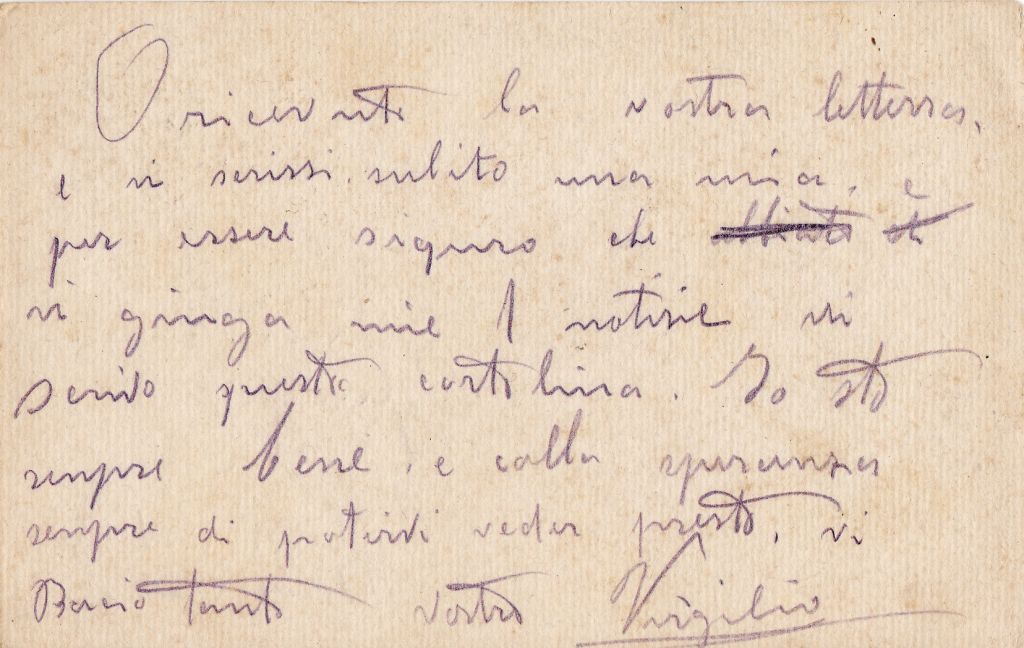 O ricevuto la vostra letterra,
e vi scrissi subito una mia, e
per essere siguro che
vi giunga mie notisie vi
scrivo questa cartolina. Io sto
senpre bene, e colla speranza
senpre di potervi veder presto, vi
Bacio tanto vostro Virgilio